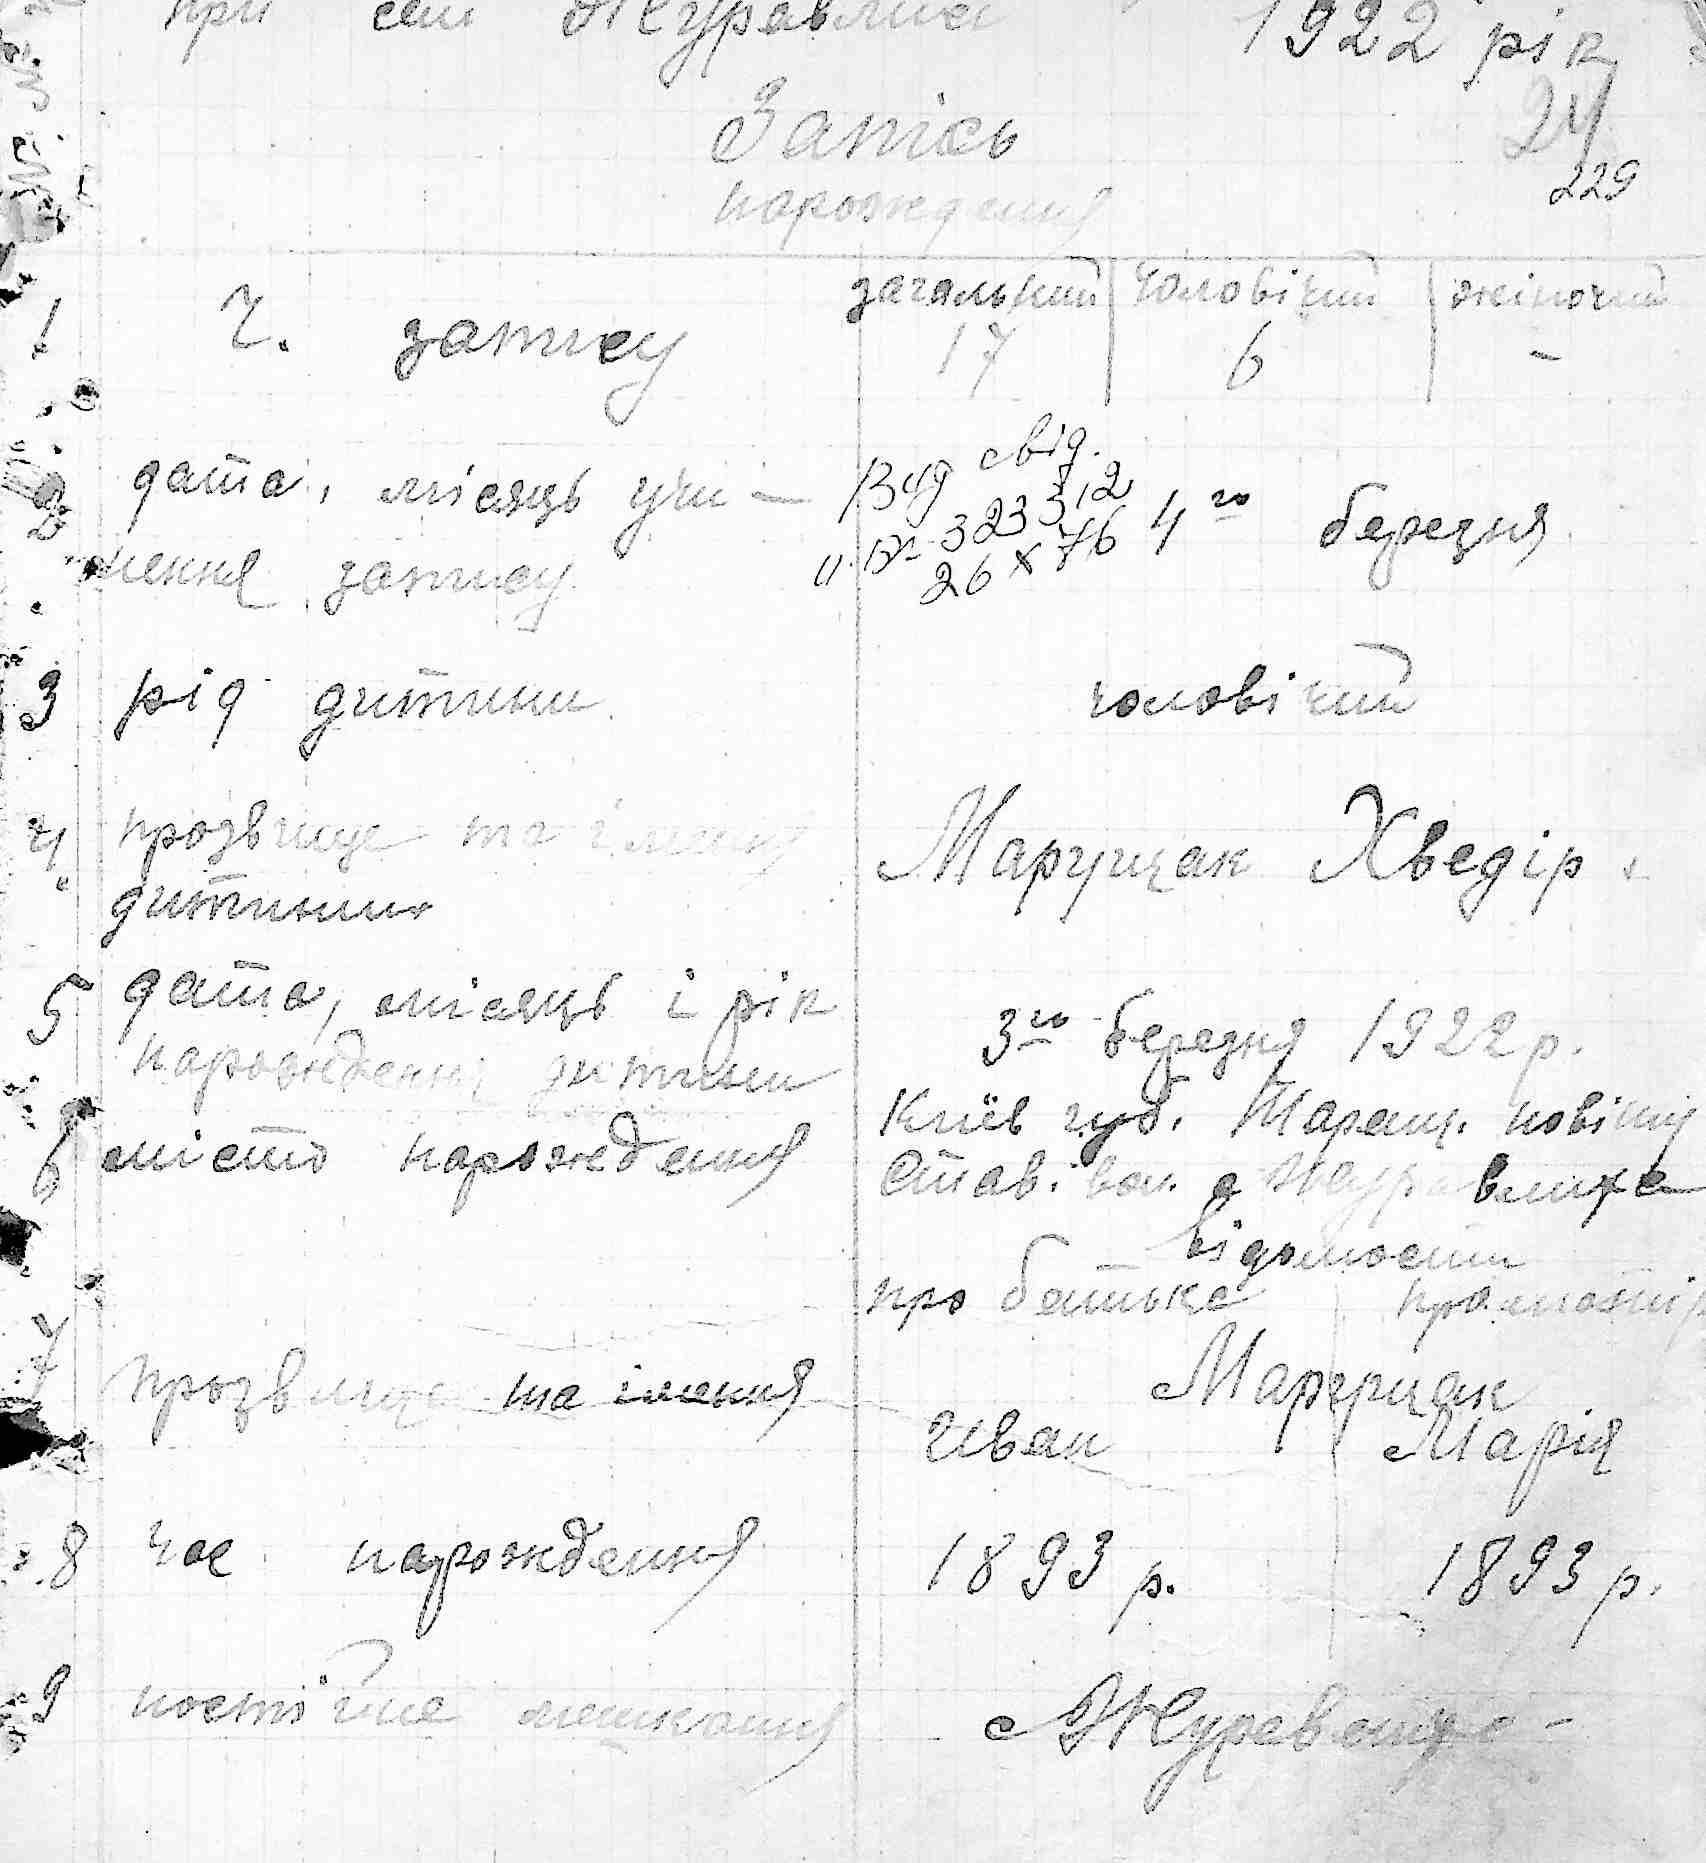 при селі Журавлиха 1922 рік
Запісь
24
229
народження
загальний чоловічий жіночий
1 Ч. запису 17 6 -
Вид свід.
дата, місяць учи- 4го березня
нення запису
26 X 76
3 рід дитини чоловічий
4 прозвище та імення Марущак Хведір
дитини
5 дата, місяць і рік 3го березня 1922 р.
народження дитини
6 місто народження Київ губ. Таращ. повіту
Став. вол. с Журавлиха
відомости
про батька про матір
7 прозвище та імення Марущак
Иван Марія
8 час народження 1893 р. 1893 р.
9 постійне мешкання с Журавлиха -